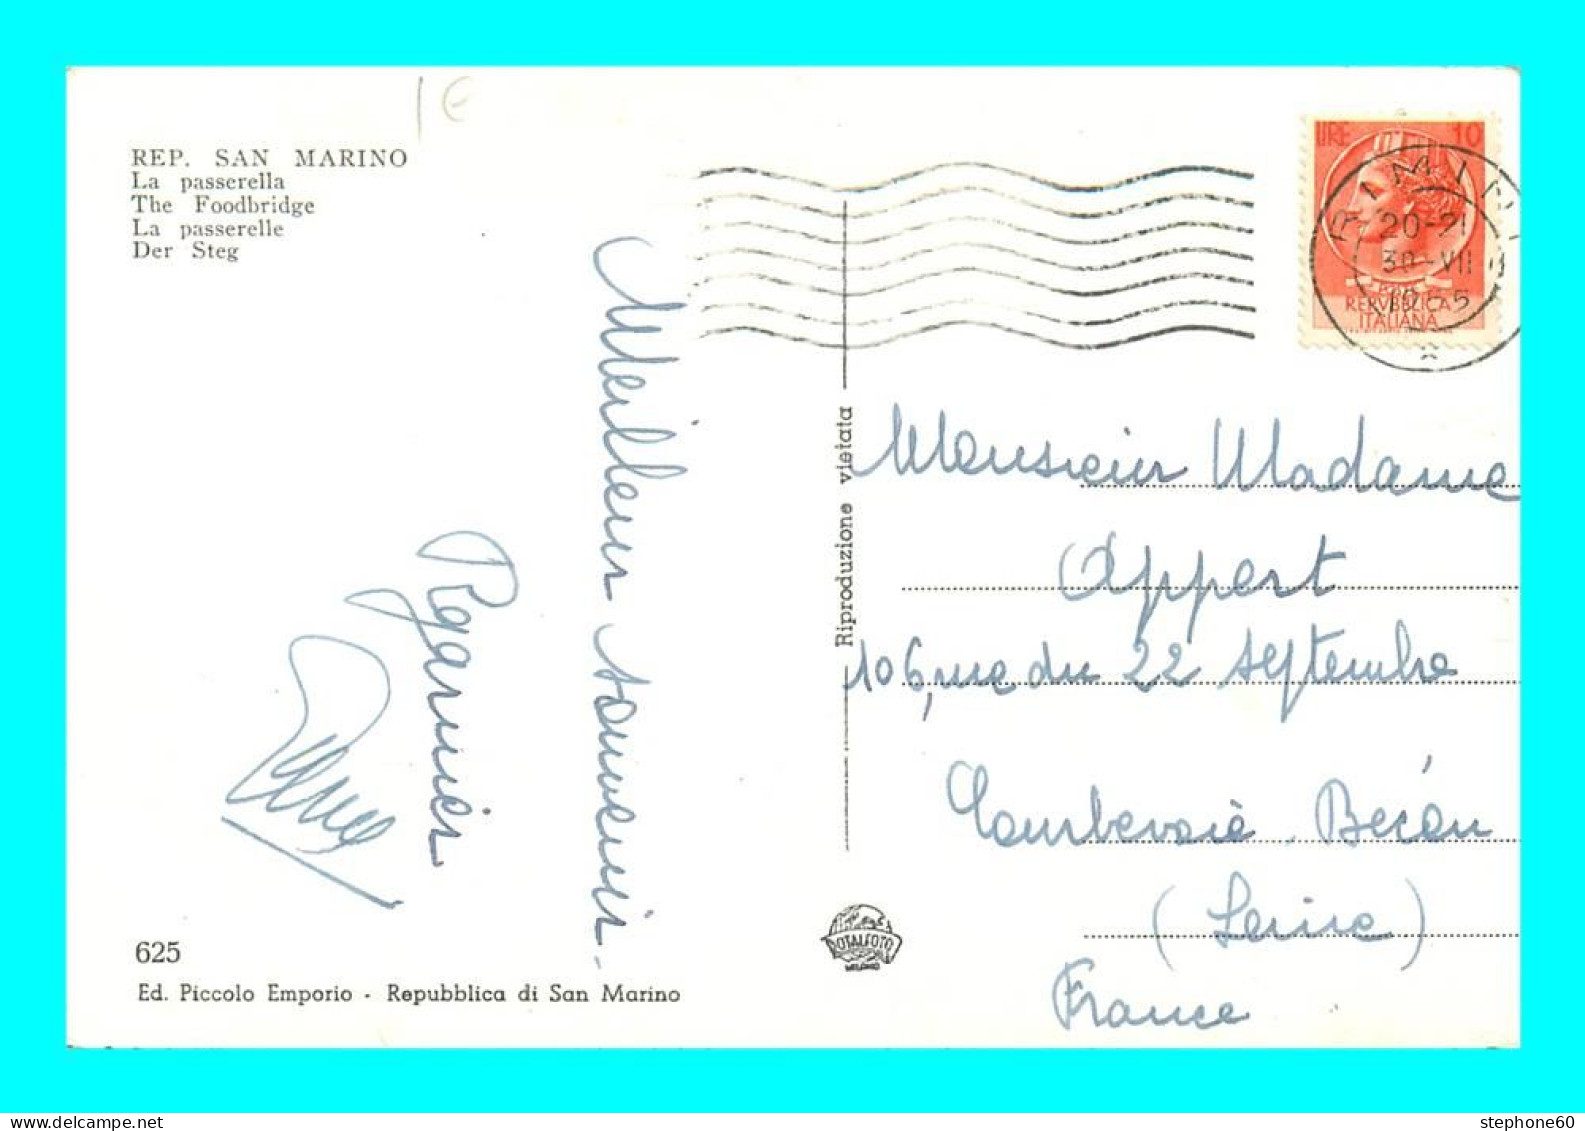 1€
REP. SAN MARINO
La passerella
The Foodbridge
La passerelle
Der Steg
LIRE 10
REPVBBLICA
ITALIANA
RIMINI
20-21
30-VII
Meilleur souvenir.
Riproduzione vietata
Monsieur Madame
Appert
106, rue du 22 septembre
Courbevoie Bécon
(Seine)
France
ROTALFOTO
MILANO
625
Ed. Piccolo Emporio - Repubblica di San Marino
stephone60